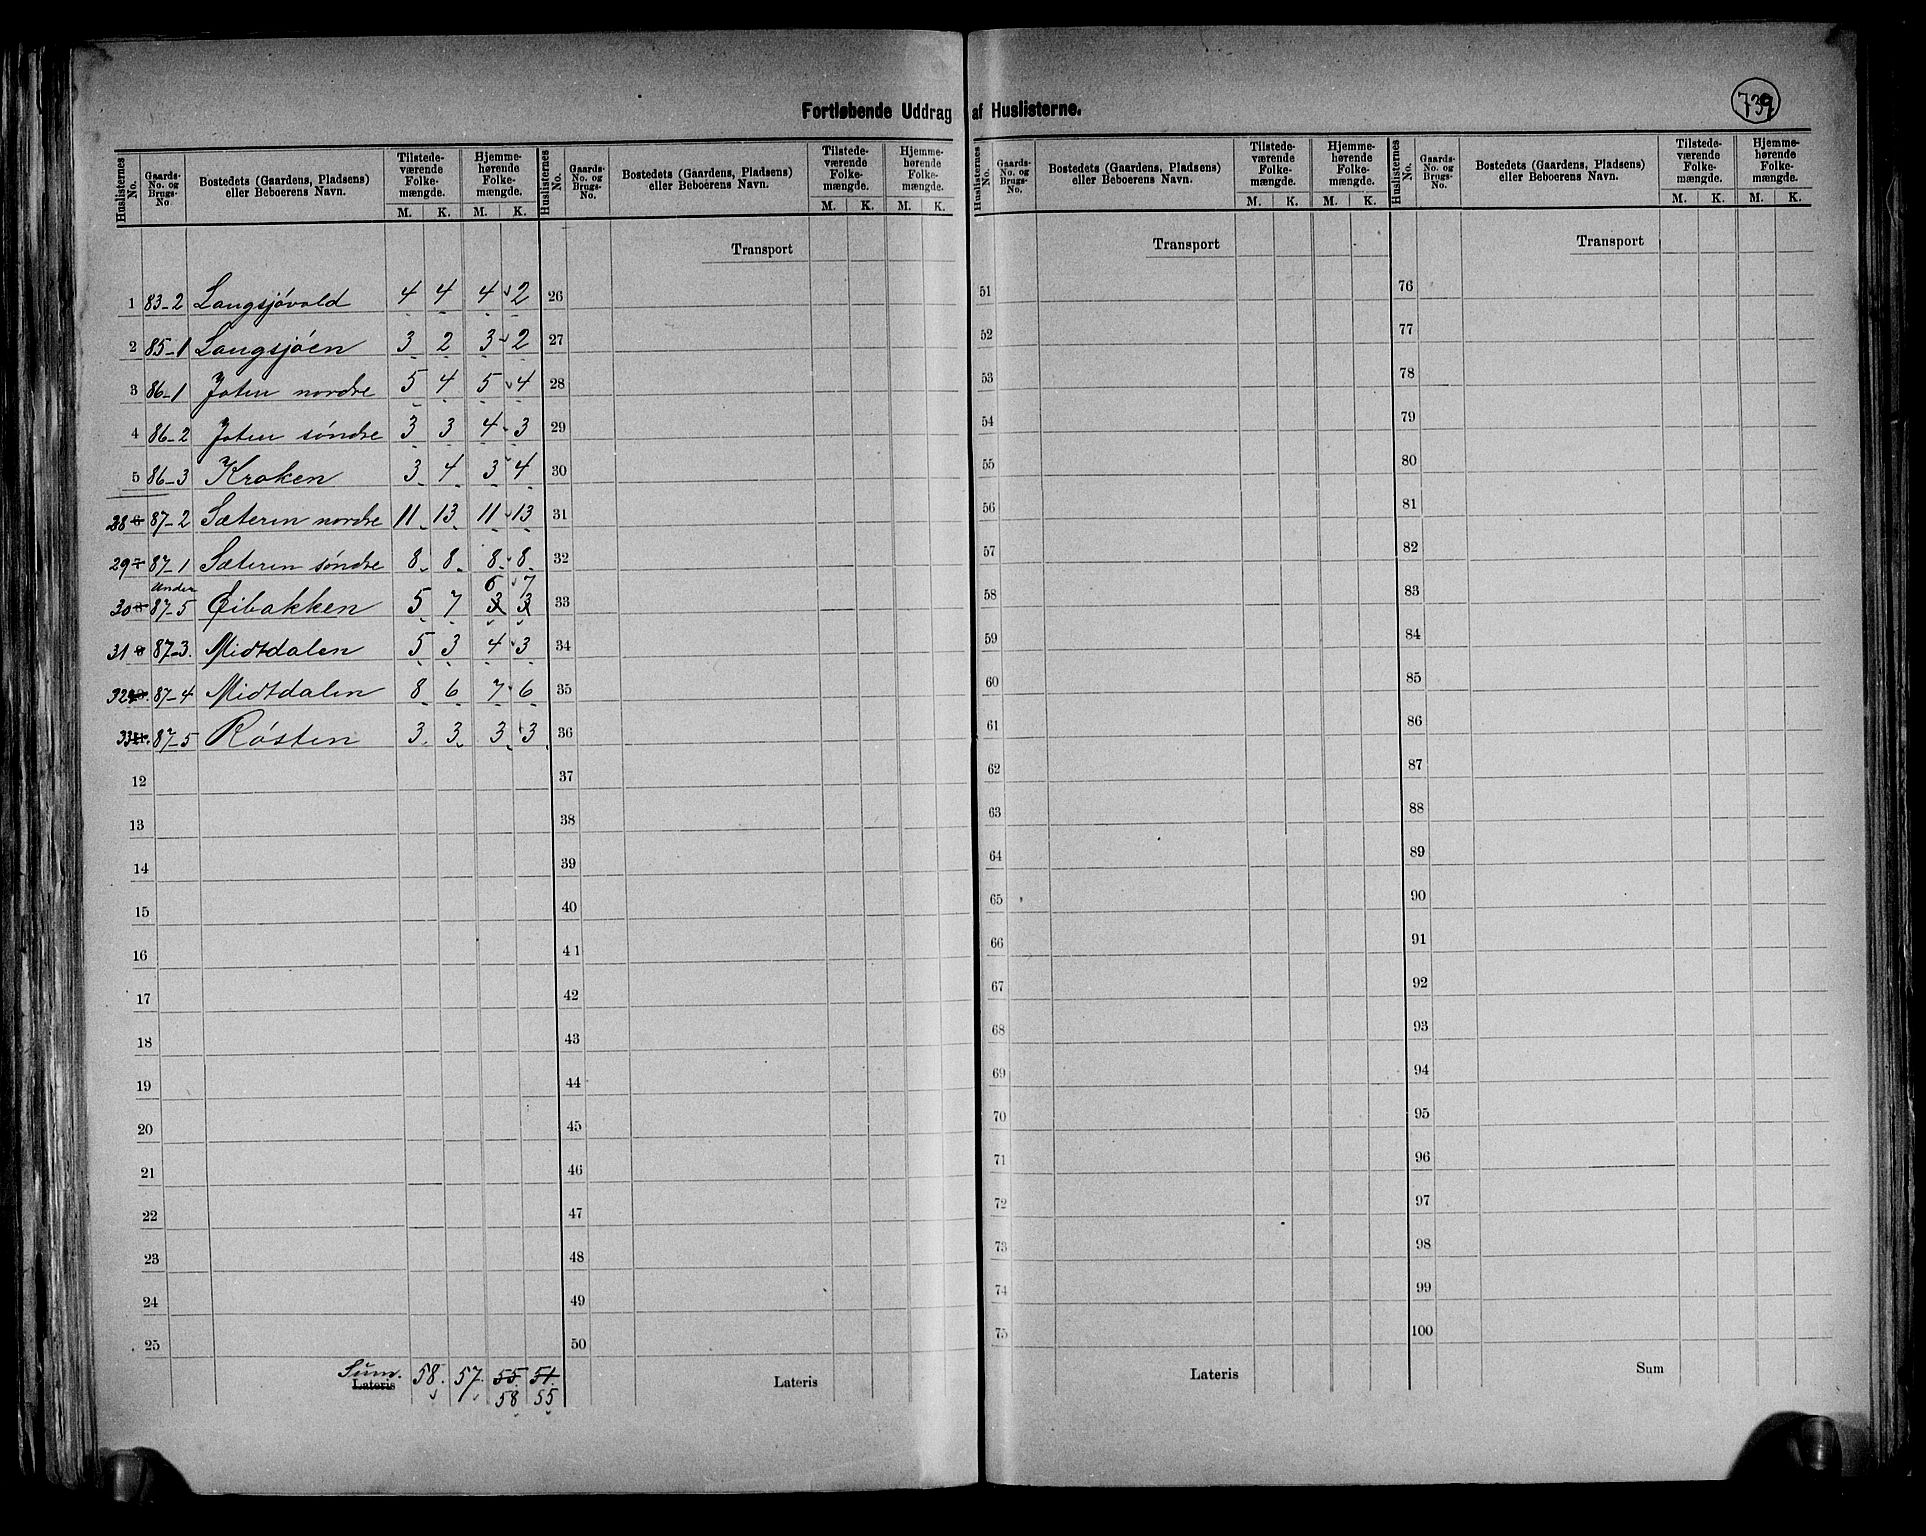 739
Fortløbende Uddrag af Huslisterne.
Huslisternes No. Gaards-No. og Brugs-No. Bostedets (Gaardens, Pladsens) eller Beboerens Navn. Tilstedeværende Folkemængde. M. K. Hjemmehørende Folkemængde. M. K.
Huslisternes No. Gaards-No. og Brugs-No. Bostedets (Gaardens, Pladsens) eller Beboerens Navn. Tilstedeværende Folkemængde. M. K. Hjemmehørende Folkemængde. M. K.
Huslisternes No. Gaards-No. og Brugs-No. Bostedets (Gaardens, Pladsens) eller Beboerens Navn. Tilstedeværende Folkemængde. M. K. Hjemmehørende Folkemængde. M. K.
Huslisternes No. Gaards-No. og Brugs-No. Bostedets (Gaardens, Pladsens) eller Beboerens Navn. Tilstedeværende Folkemængde. M. K. Hjemmehørende Folkemængde. M. K.
1 83-2 Langsjøvold 4 4 4 2
2 85-1 Langsjøen 3 2 3 2
3 86-1 Joten nordre 5 4 5 4
4 86-2 Joten søndre 3 3 4 3
5 86-3 Kroken 3 4 3 4
28 87-2 Sæteren nordre 11 13 11 13
29 87-1 Sæteren søndre 8 8 8 8
Under 6 7
30 87-5 Øibakken 5 7 3 3
31 87-3. Midtdalen 5 3 4 3
32 87-4 Midtdalen 8 6 7 6
33 87-5 Røsten 3 3 3 3
12
13
14
15
16
17
18
19
20
21
22
23
24
25
Sum. 58. 57. 55. 51.
Lateris 58 55
Transport
26
27
28
29
30
31
32
33
34
35
36
37
38
39
40
41
42
43
44
45
46
47
48
49
50
Lateris
Transport
51
52
53
54
55
56
57
58
59
60
61
62
63
64
65
66
67
68
69
70
71
72
73
74
75
Lateris
Transport
76
77
78
79
80
81
82
83
84
85
86
87
88
89
90
91
92
93
94
95
96
97
98
99
100
Sum